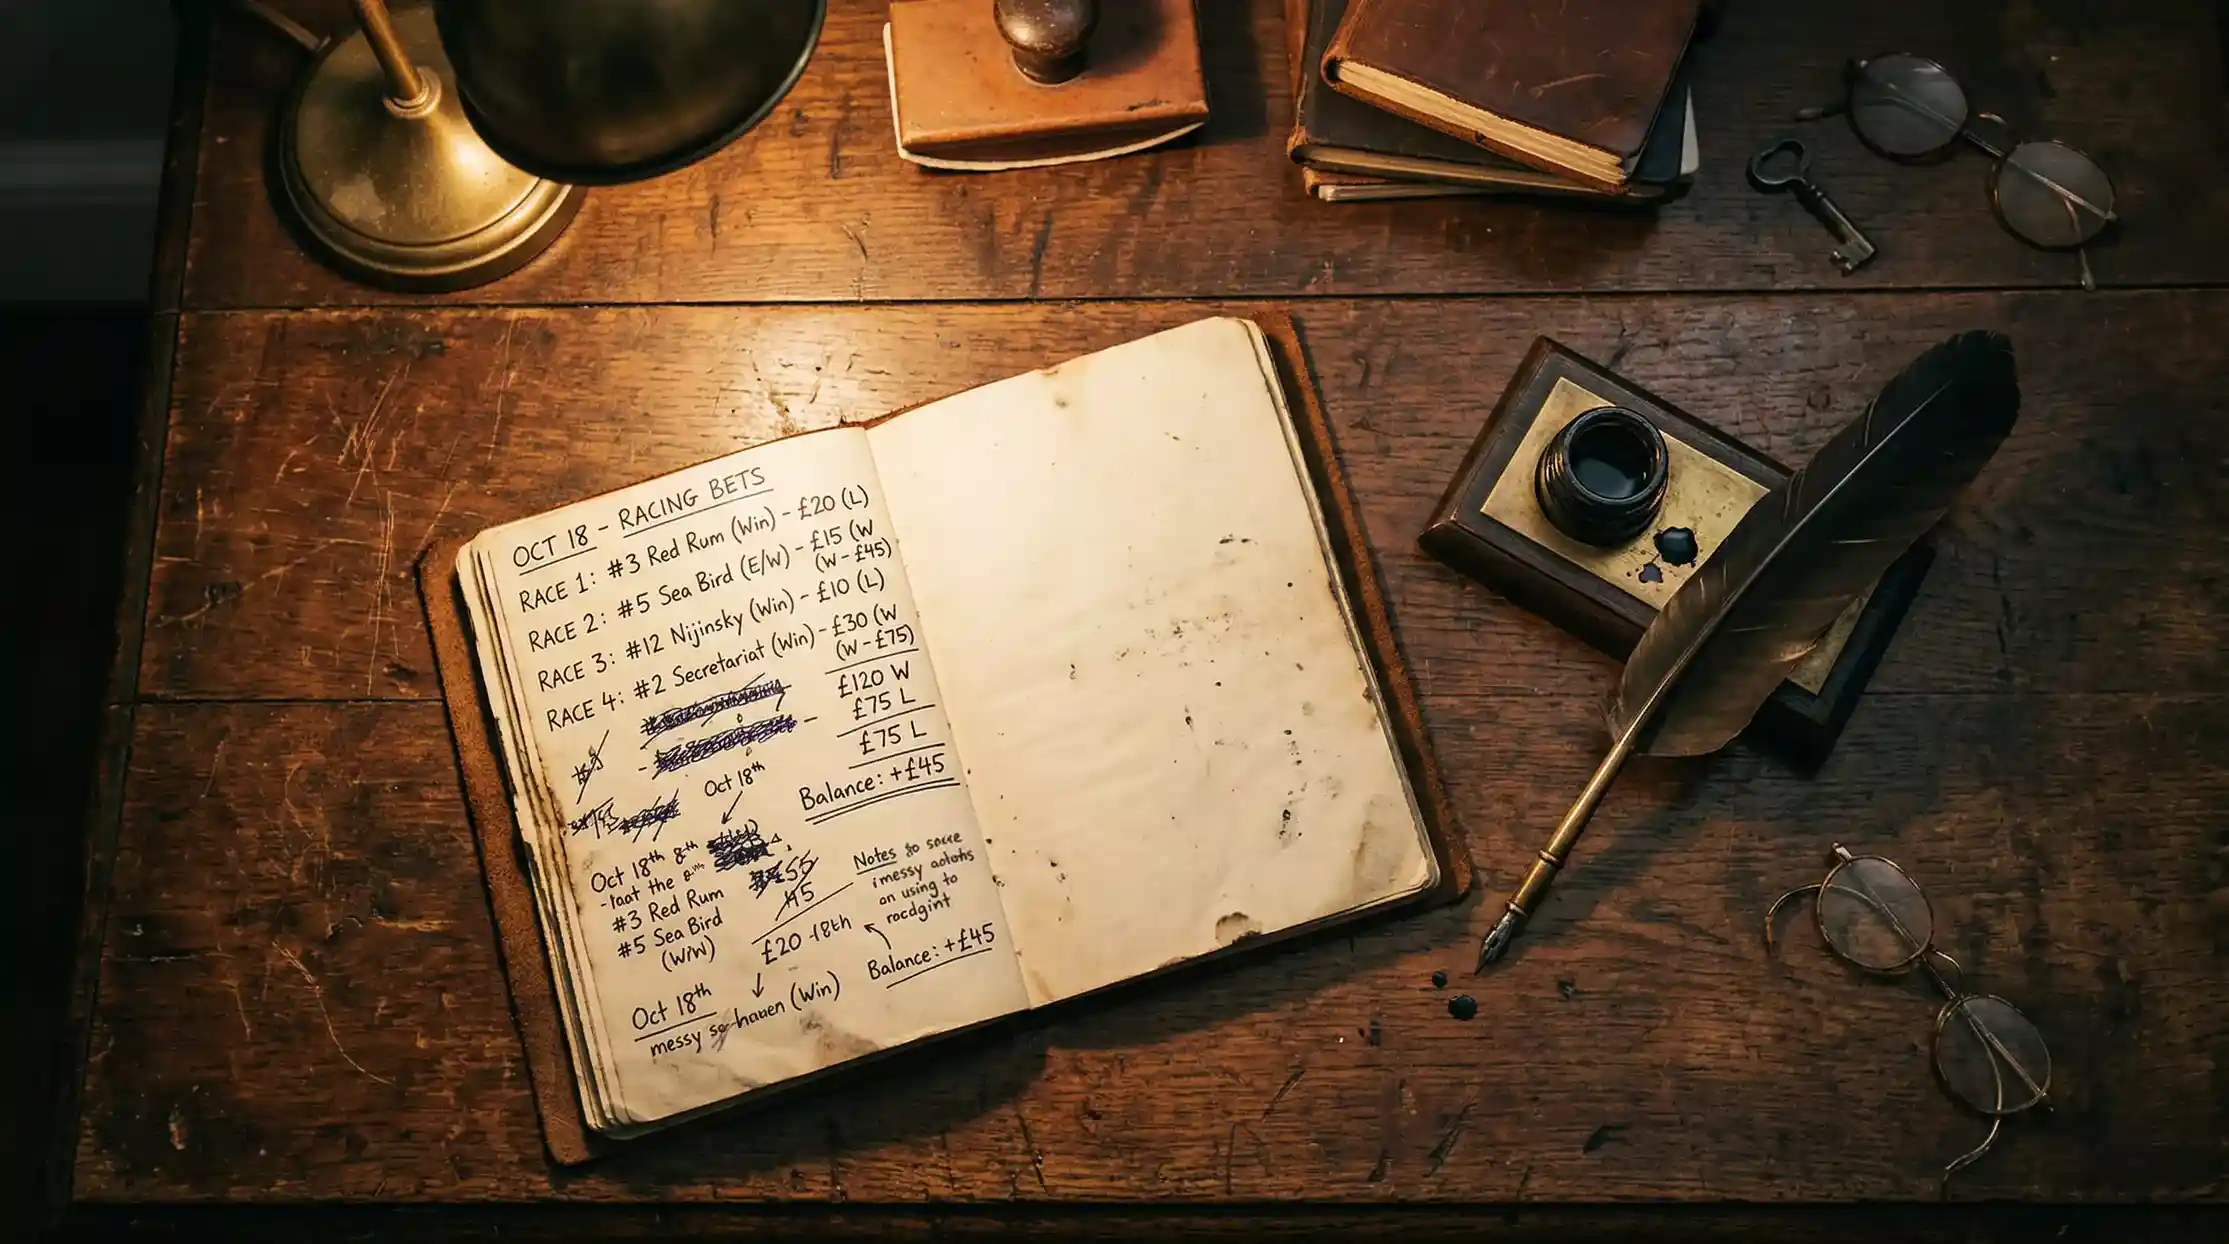 OCT 18 - RACING BETS
RACE 1: #3 Red Rum (Win) - £20 (L)
RACE 2: #5 Sea Bird (E/W) - £15 (W
(W - £45)
RACE 3: #12 Nijinsky (Win) - £10 (L)
RACE 4: #2 Secretariat (Win) - £30 (W
(W - £75)
£120 W
£75 L
£75 L
Balance: +£45
Oct 18th
Oct 18th 8th
- the
#3 Red Rum
#5 Sea Bird
(W/W)
£55
45
£20 18th
Notes to
messy
on using to
Balance: +£45
Oct 18th
messy (Win)